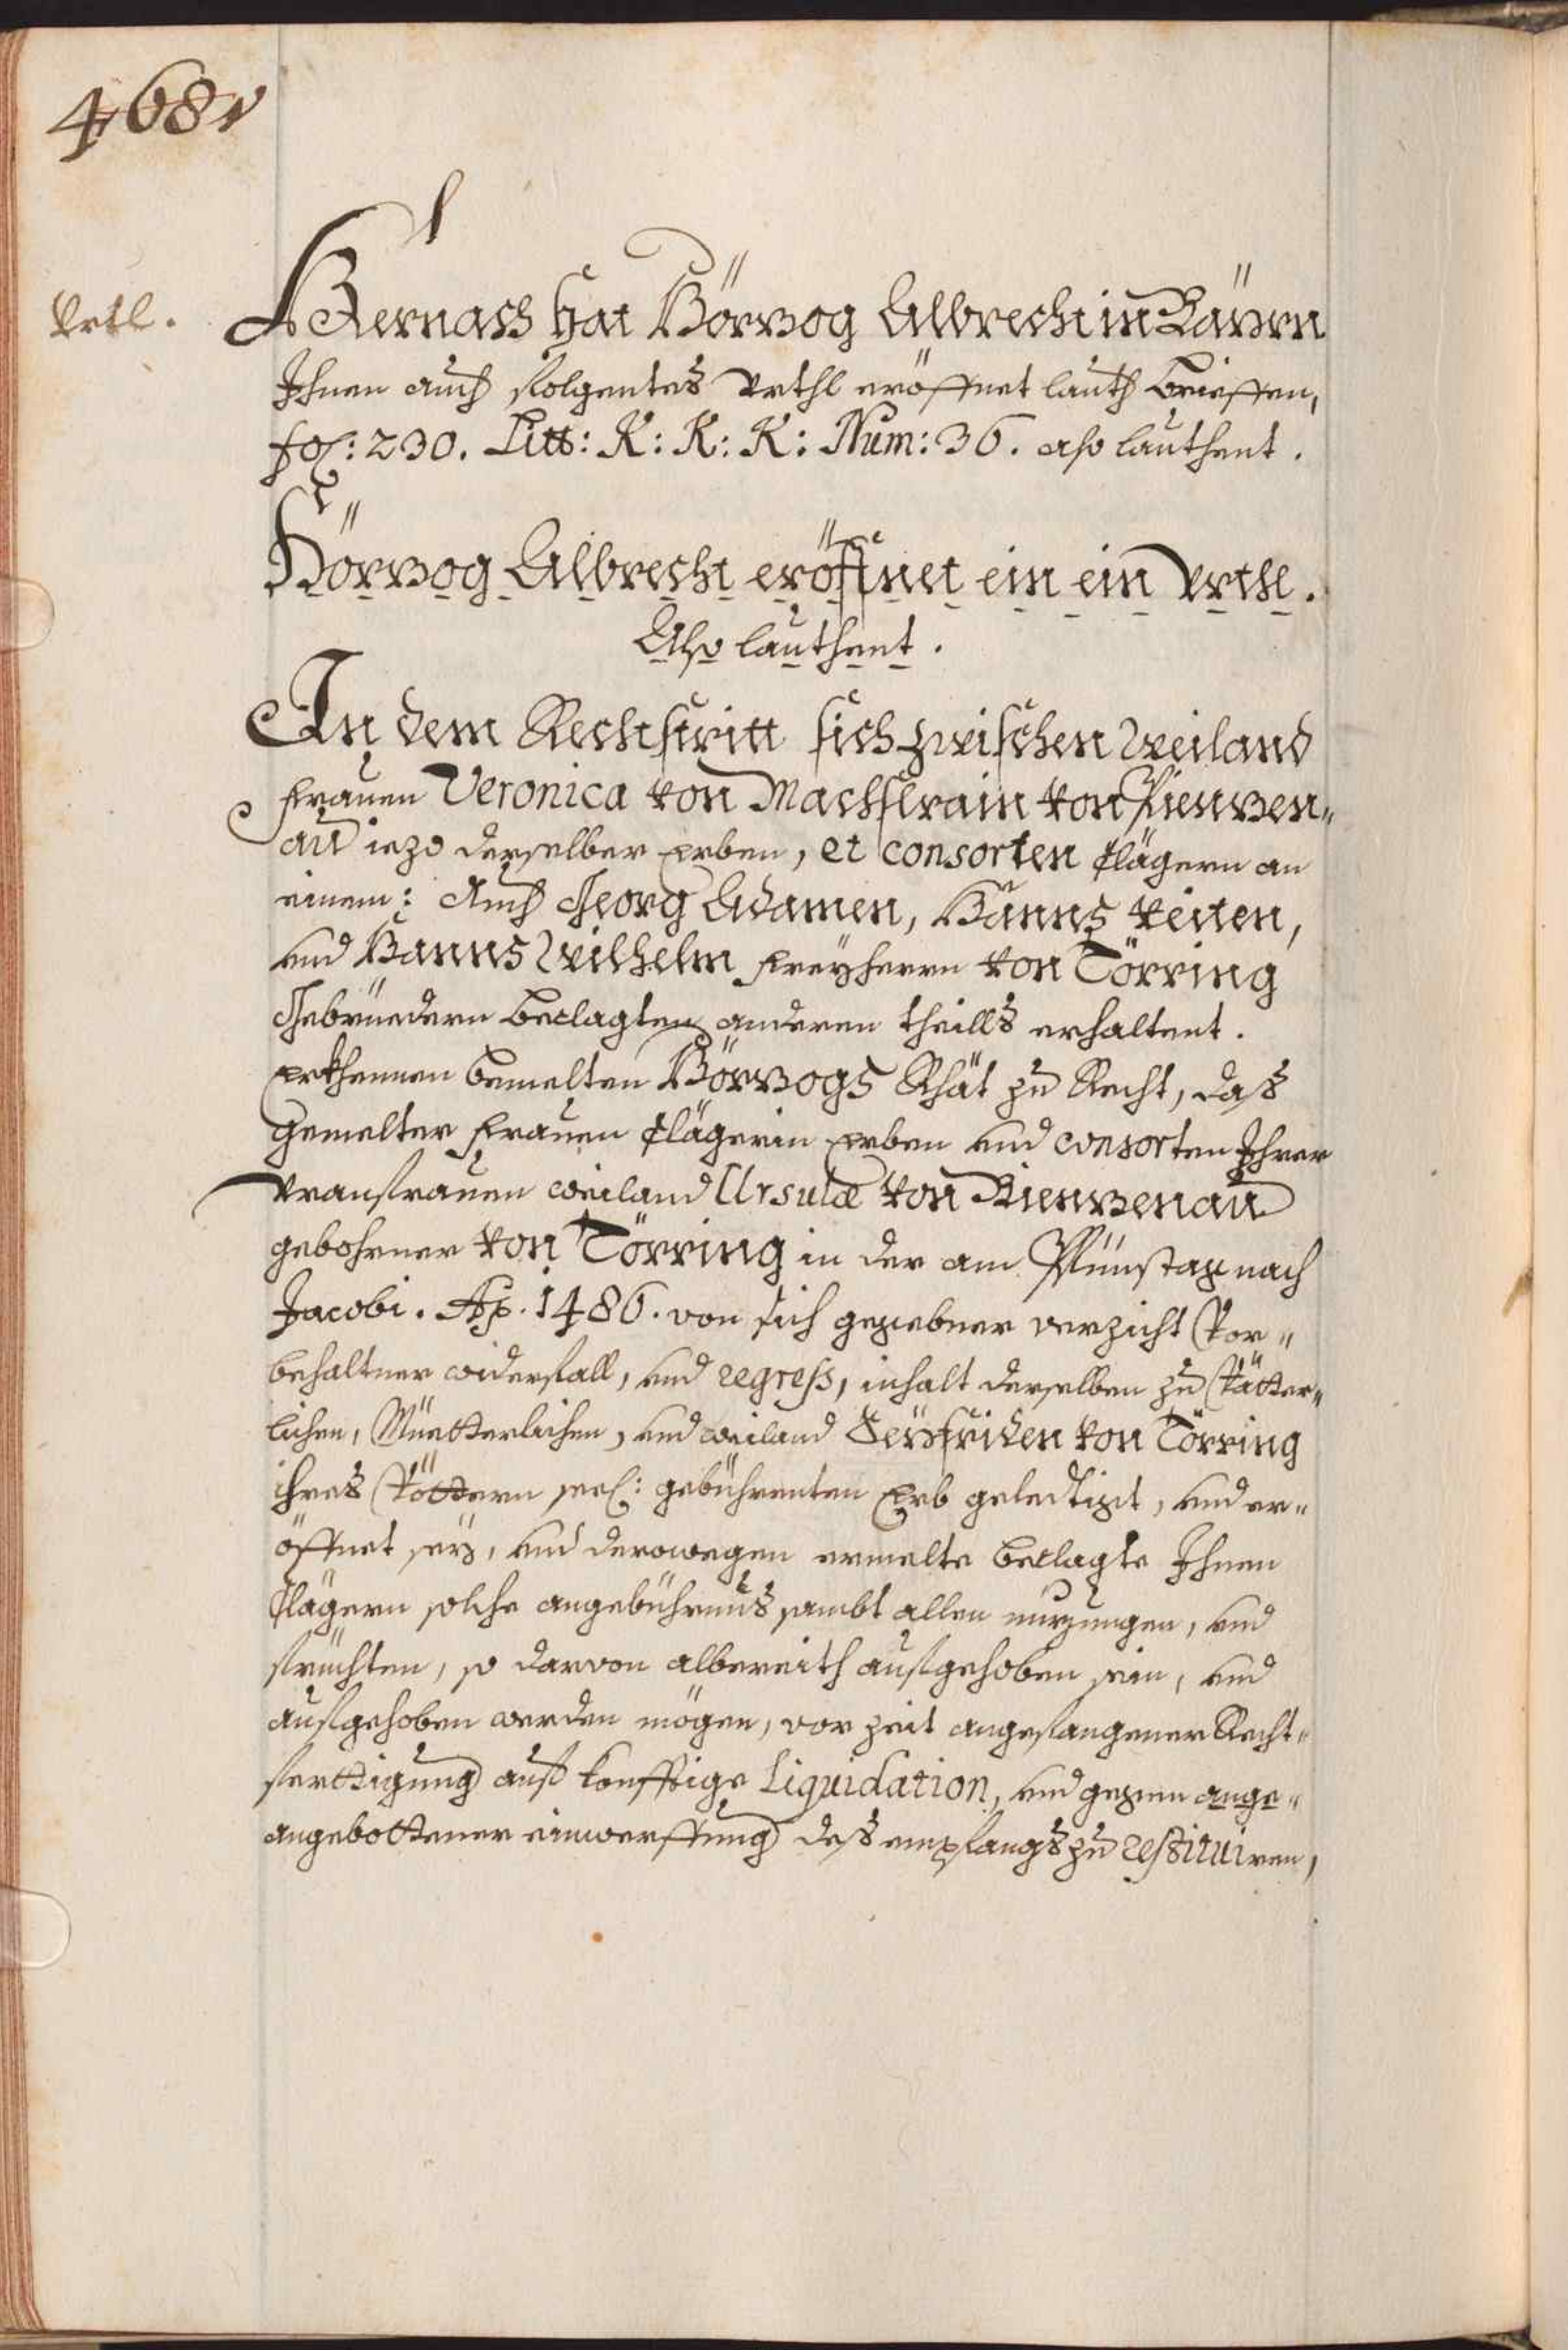 468v
Vrtl.
Hernach hat Hörzog Albrecht in Bäÿrn
Ihnen auch folgentes Vrthl eröffnet lauth brieffen,
fol: 230. Litt: K: K: K: Num: 36. also lauthent.
Hörzog Albrecht eröffnet ein ein Vrthl.
Also lauthent.
In dem Rechtstritt sich zwischen Weiland
frauen Veronica von Machslrain von Pienzen„
au iezo derselber erben, et consorten Clägern an
einem: Auch Georg Adamen, Hanns Veiten,
vnd Hanns Wilhelm freÿherrn von Törring
Gebrüedern beclagten anderen theills erhaltent.
erkhennen bemelten Hörzogs Rhät zu Recht, daß
gemelter frauen Clägerin erben vnd consorten Ihrer
Vranfrauen weiland Ursulæ von Bienzenau
gebohrner von Törring in der am Pfünstag nach
Jacobi. Ao. 1486. von sich gegebner verzicht Vor„
behaltner widerfall, vnd regress, inhalt derselben zu Vätter„
lichen, Müetterlichen, vnd weiland Seÿfriden von Törring
ihres Vöttern seel: gebührenten Erb geledigt, vnd er„
öffnet seÿ, vnd derowegen ermelte beclagte Ihnen
Clägern solche angebührnus sambt allen nuzungen, vnd
früchten, so darvon albereith aufgehoben sein, vnd
aufgehoben werden mögen, vor zeit angefangener Recht„
ferttigung auf konfftige Liquidation, vnd gegen ange„
angebottener einwerffung deß empfangs zu restituiren,